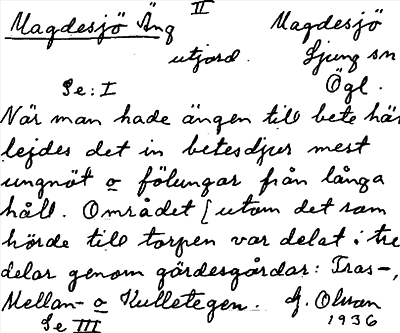 II
Magdesjö Äng Magdesjö
utjord. Ljung sn
Se: I Ögl.
När man hade ängen till bete här
lejdes det in betesdjur mest
ungnöt o fölungar från långa
håll. Området [utom det som
hörde till torpen var delat i tre
delar genom gärdesgårdar: Tras-,
Mellan- o Kulletegen. G. Olson
Se III 1936